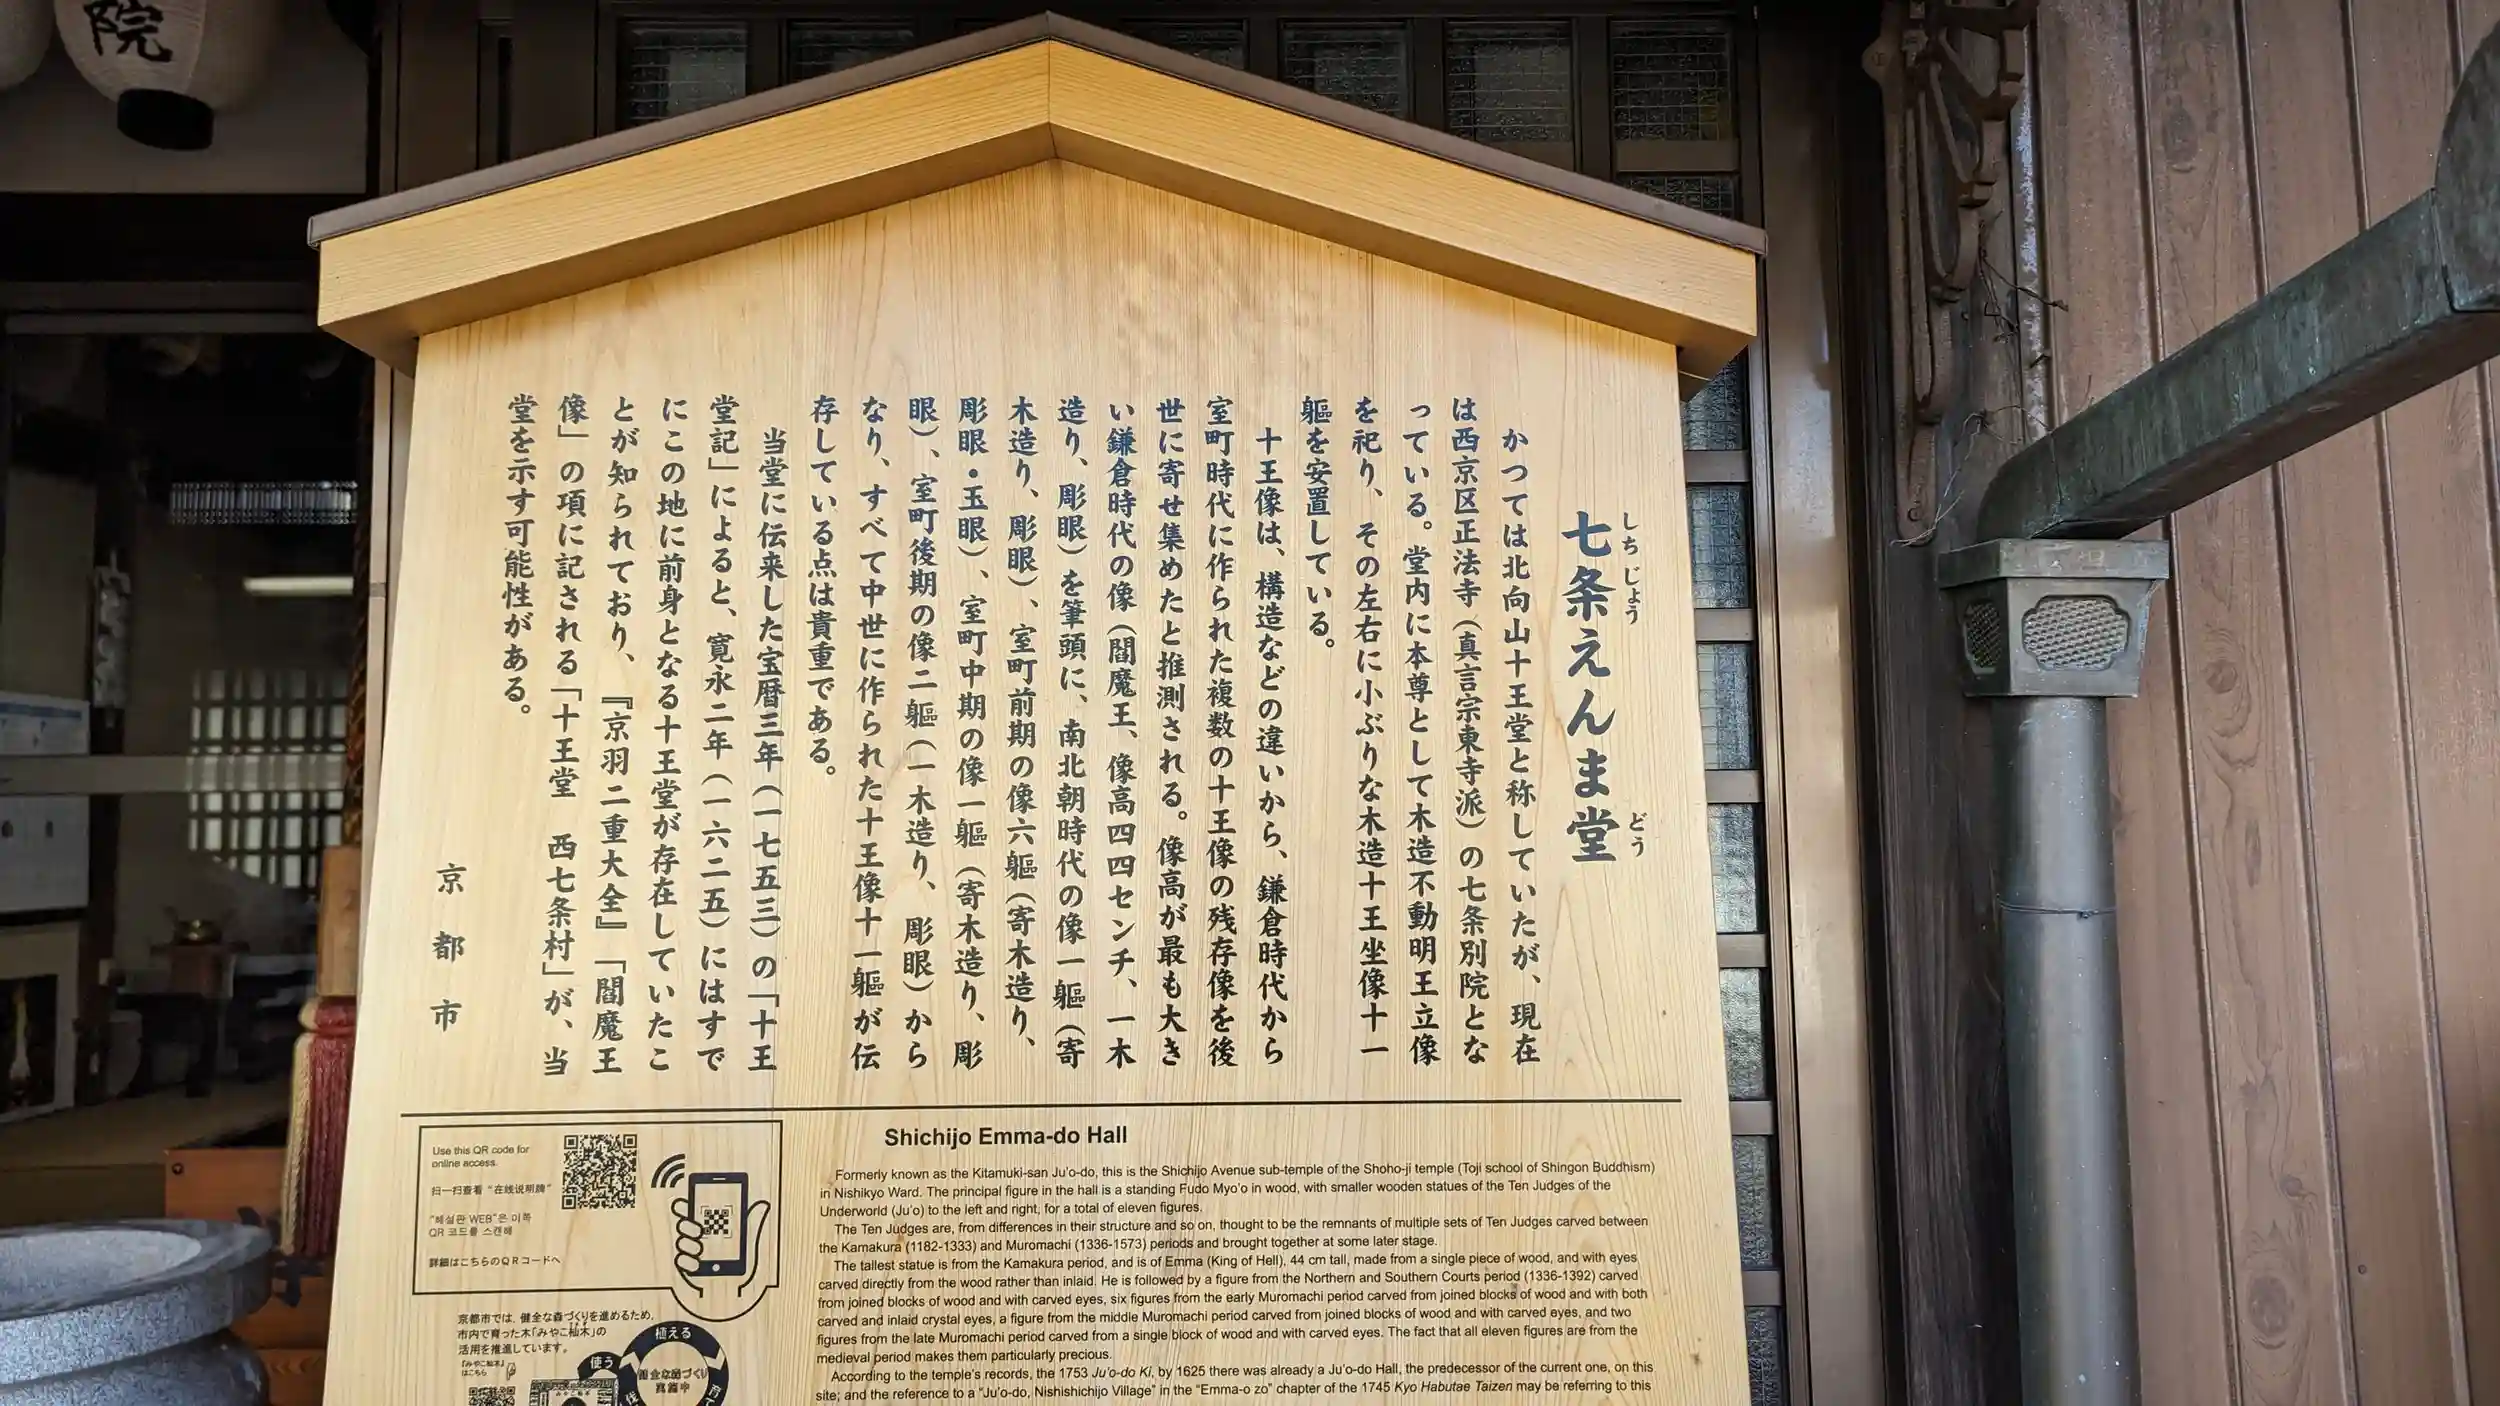 院
七条えんま堂
しちじょう
どう
かつては北向山十王堂と称していたが、現在
は西京区正法寺（真言宗東寺派）の七条別院とな
っている。堂内に本尊として木造不動明王立像
を祀り、その左右に小ぶりな木造十王坐像十一
軀を安置している。
十王像は、構造などの違いから、鎌倉時代から
室町時代に作られた複数の十王像の残存像を後
世に寄せ集めたと推測される。像高が最も大き
い鎌倉時代の像（閻魔王、像高四四センチ、一木
造り、彫眼）を筆頭に、南北朝時代の像一軀（寄
木造り、彫眼）、室町前期の像六軀（寄木造り、
彫眼・玉眼）、室町中期の像一軀（寄木造り、彫
眼）、室町後期の像二軀（一木造り、彫眼）から
なり、すべて中世に作られた十王像十一軀が伝
存している点は貴重である。
当堂に伝来した宝暦三年（一七五三）の「十王
堂記」によると、寛永二年（一六二五）にはすで
にこの地に前身となる十王堂が存在していたこ
とが知られており、『京羽二重大全』「閻魔王
像」の項に記される「十王堂　西七条村」が、当
堂を示す可能性がある。
京都市
Use this QR code for
online access.
扫一扫查看“在线说明牌”
“해설판 WEB”은 이쪽
QR 코드를 스캔해
詳細はこちらのＱＲコードへ
京都市では、健全な森づくりを進めるため、
市内で育った木「みやこ杣木」の
活用を推進しています。
「みやこ杣木」
はこちら
植える
使う
健全な森づくり
実施中
Shichijo Emma-do Hall
Formerly known as the Kitamuki-san Ju’o-do, this is the Shichijo Avenue sub-temple of the Shoho-ji temple (Toji school of Shingon Buddhism)
in Nishikyo Ward. The principal figure in the hall is a standing Fudo Myo’o in wood, with smaller wooden statues of the Ten Judges of the
Underworld (Ju’o) to the left and right, for a total of eleven figures.
The Ten Judges are, from differences in their structure and so on, thought to be the remnants of multiple sets of Ten Judges carved between
the Kamakura (1182-1333) and Muromachi (1336-1573) periods and brought together at some later stage.
The tallest statue is from the Kamakura period, and is of Emma (King of Hell), 44 cm tall, made from a single piece of wood, and with eyes
carved directly from the wood rather than inlaid. He is followed by a figure from the Northern and Southern Courts period (1336-1392) carved
from joined blocks of wood and with carved eyes, six figures from the early Muromachi period carved from joined blocks of wood and with both
carved and inlaid crystal eyes, a figure from the middle Muromachi period carved from joined blocks of wood and with carved eyes, and two
figures from the late Muromachi period carved from a single block of wood and with carved eyes. The fact that all eleven figures are from the
medieval period makes them particularly precious.
According to the temple’s records, the 1753 Ju’o-do Ki, by 1625 there was already a Ju’o-do Hall, the predecessor of the current one, on this
site; and the reference to a “Ju’o-do, Nishishichijo Village” in the “Emma-o zo” chapter of the 1745 Kyo Habutae Taizen may be referring to this